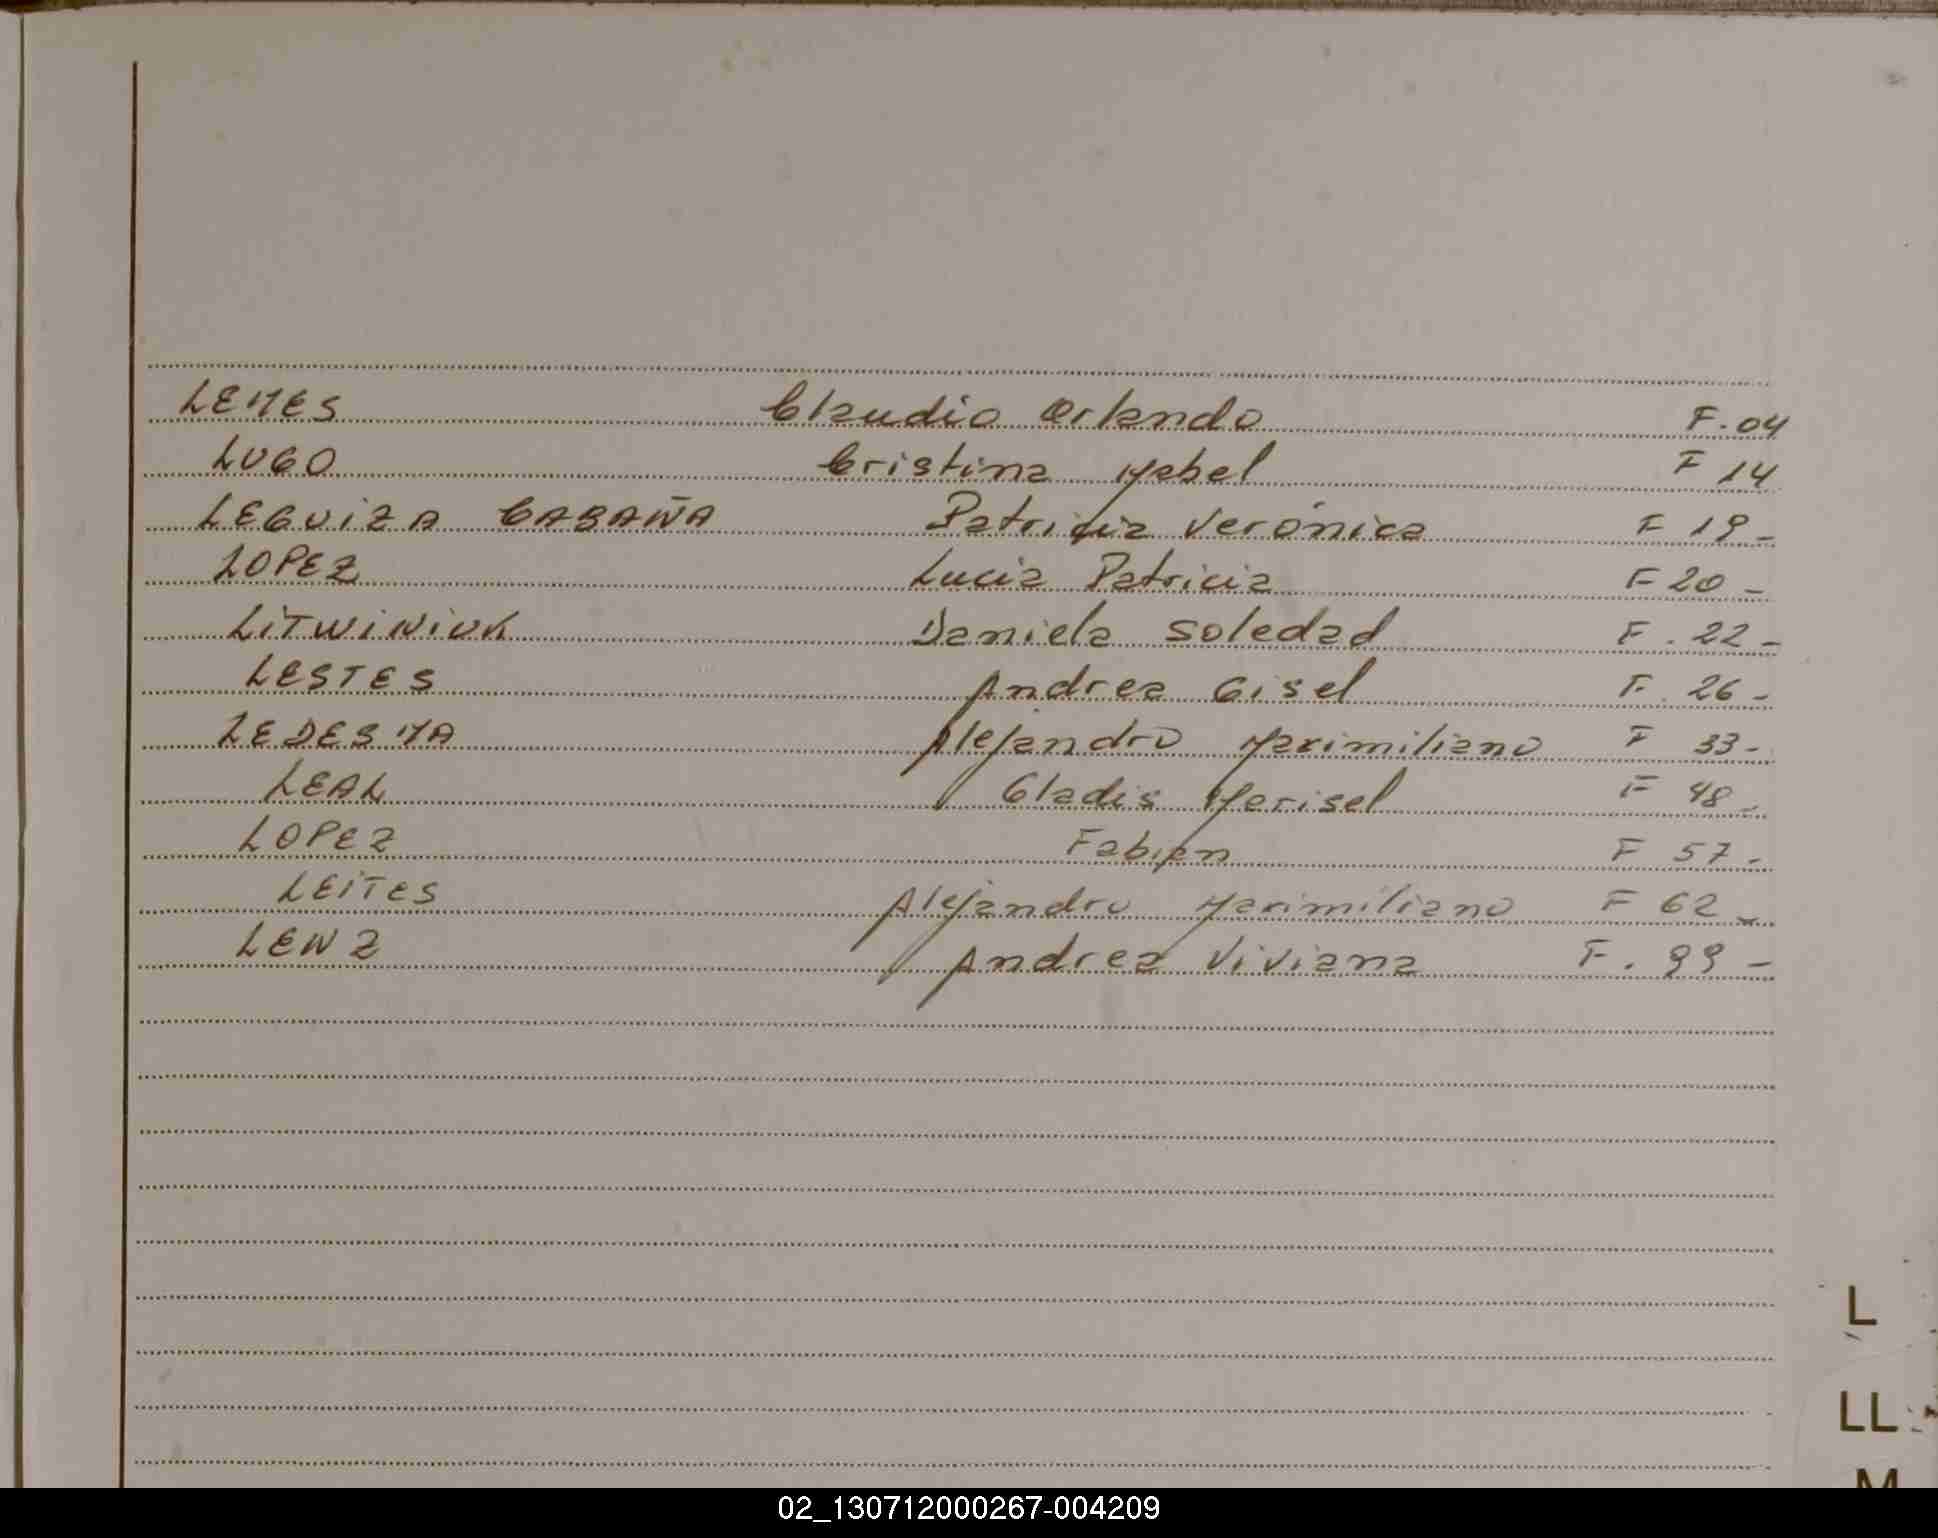 LEMES Claudio Orlando F. 04
LUGO Cristina Mabel F 14
LEGUIZA CABAÑA Patricia Verónica F 19 -
LOPEZ Lucia Patricia F 20 -
LITWINIUK Daniela Soledad F. 22 -
LESTES Andrea Gisel F. 26 -
LEDESMA Alejandro Maximiliano F 33 -
LEAL Gladis Marisel F 48 -
LOPEZ Fabian F 57 -
LEITES Alejandro Maximiliano F 62 -
LENZ Andrea Viviana F. 99 -
L
LL
M
02_130712000267-004209